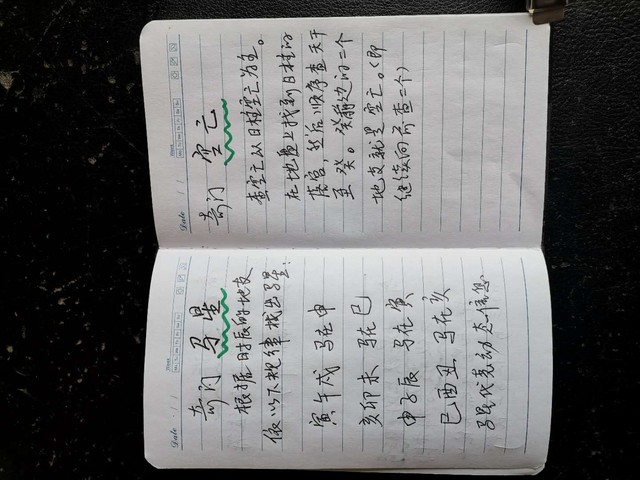 Date / /
奇门 马星
根据时辰的地支
依以下规律找出马星:
寅午戌 马在申
亥卯未 马在巳
申子辰 马在寅
巳酉丑 马在亥
马星代表动态信息
Date / /
奇门 空亡
查空亡以日柱空亡为主。
在地盘上找到日柱的
落宫,然后顺序查天干
至癸。癸前边的二个
地支就是空亡。(即
继续向前查二个)